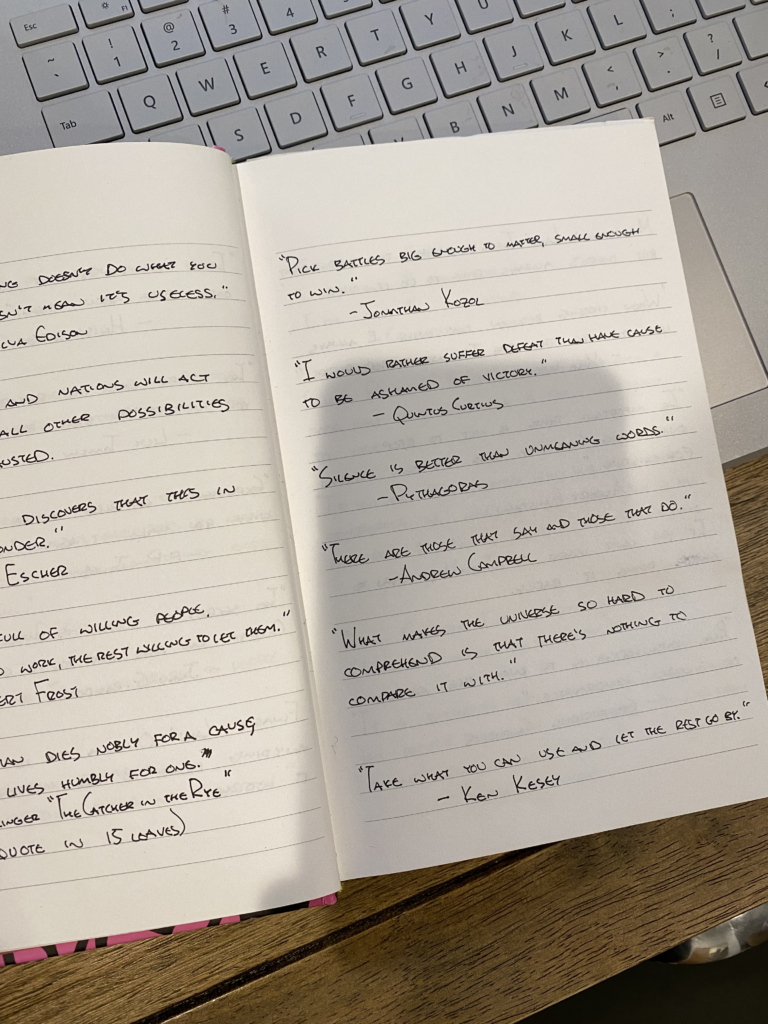 Esc
F1
~ `
! 1
@ 2
# 3
4
Tab
Q W E R T Y U
S D F G H J K L ;
B N M < , > . ? /
Alt
NG DOESN'T DO WHAT YOU
SN'T MEAN IT'S USELESS."
LVA EDISON
AND NATIONS WILL ACT
ALL OTHER POSSIBILITIES
USTED.
DISCOVERS THAT THIS IN
ONDER."
ESCHER
FULL OF WILLING PEOPLE,
WORK, THE REST WILLING TO LET THEM."
ERT FROST
MAN DIES NOBLY FOR A CAUSE,
LIVES HUMBLY FOR ONE."
LINGER "THE CATCHER IN THE RYE"
QUOTE IN 15 LEAVES)
"PICK BATTLES BIG ENOUGH TO MATTER, SMALL ENOUGH
TO WIN."
- JONATHAN KOZOL
"I WOULD RATHER SUFFER DEFEAT THAN HAVE CAUSE
TO BE ASHAMED OF VICTORY."
- QUINTUS CURTIUS
"SILENCE IS BETTER THAN UNMEANING WORDS."
- PYTHAGORAS
"THERE ARE THOSE THAT SAY AND THOSE THAT DO."
- ANDREW CAMPBELL
"WHAT MAKES THE UNIVERSE SO HARD TO
COMPREHEND IS THAT THERE'S NOTHING TO
COMPARE IT WITH."
"TAKE WHAT YOU CAN USE AND LET THE REST GO BY."
- KEN KESEY